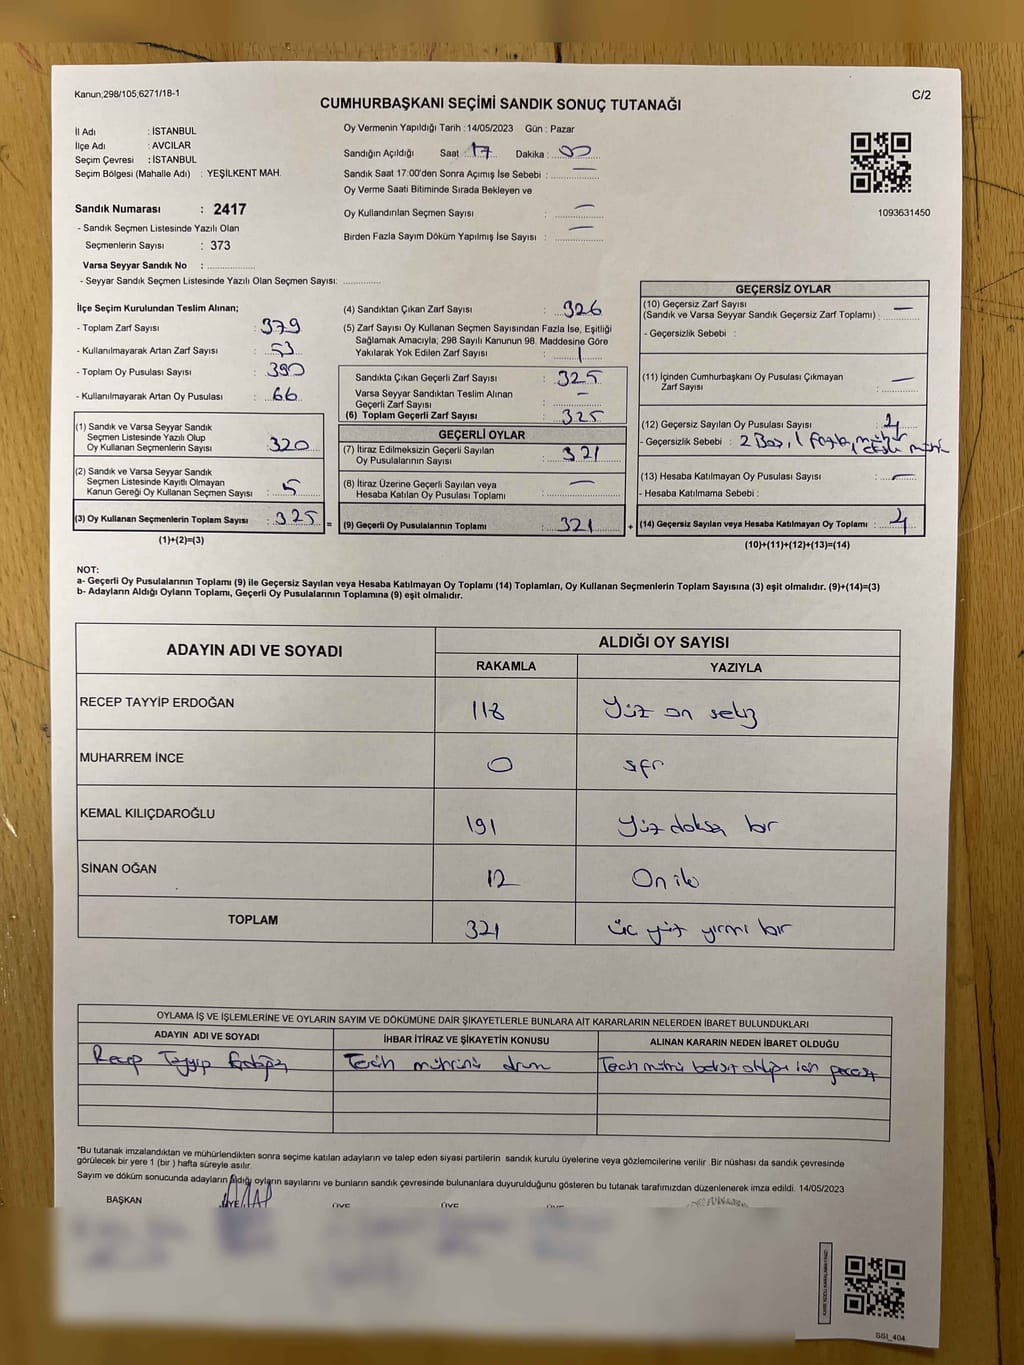 Kanun;298/105;6271/18-1
C/2
CUMHURBAŞKANI SEÇİMİ SANDIK SONUÇ TUTANAĞI
İl Adı : İSTANBUL
İlçe Adı : AVCILAR
Seçim Çevresi : İSTANBUL
Seçim Bölgesi (Mahalle Adı) : YEŞİLKENT MAH.
Sandık Numarası : 2417
- Sandık Seçmen Listesinde Yazılı Olan
Seçmenlerin Sayısı : 373
Varsa Seyyar Sandık No :
- Seyyar Sandık Seçmen Listesinde Yazılı Olan Seçmen Sayısı:
Oy Vermenin Yapıldığı Tarih : 14/05/2023 Gün : Pazar
Sandığın Açıldığı Saat : 17 Dakika : 00
Sandık Saat 17:00'den Sonra Açımış İse Sebebi : —
Oy Verme Saati Bitiminde Sırada Bekleyen ve
Oy Kullandırılan Seçmen Sayısı : —
Birden Fazla Sayım Döküm Yapılmış İse Sayısı : —
1093631450
İlçe Seçim Kurulundan Teslim Alınan;
- Toplam Zarf Sayısı : 379
- Kullanılmayarak Artan Zarf Sayısı : 53
- Toplam Oy Pusulası Sayısı : 390
- Kullanılmayarak Artan Oy Pusulası : 66
(1) Sandık ve Varsa Seyyar Sandık
Seçmen Listesinde Yazılı Olup
Oy Kullanan Seçmenlerin Sayısı : 320
(2) Sandık ve Varsa Seyyar Sandık
Seçmen Listesinde Kayıtlı Olmayan
Kanun Gereği Oy Kullanan Seçmen Sayısı : 5
(3) Oy Kullanan Seçmenlerin Toplam Sayısı : 325
(1)+(2)=(3)
(4) Sandıktan Çıkan Zarf Sayısı : 326
(5) Zarf Sayısı Oy Kullanan Seçmen Sayısından Fazla İse, Eşitliği
Sağlamak Amacıyla; 298 Sayılı Kanunun 98. Maddesine Göre
Yakılarak Yok Edilen Zarf Sayısı : 1
Sandıkta Çıkan Geçerli Zarf Sayısı : 325
Varsa Seyyar Sandıktan Teslim Alınan
Geçerli Zarf Sayısı : —
(6) Toplam Geçerli Zarf Sayısı : 325
GEÇERLİ OYLAR
(7) İtiraz Edilmeksizin Geçerli Sayılan
Oy Pusulalarının Sayısı : 321
(8) İtiraz Üzerine Geçerli Sayılan veya
Hesaba Katılan Oy Pusulası Toplamı : —
= (9) Geçerli Oy Pusulalarının Toplamı : 321
GEÇERSİZ OYLAR
(10) Geçersiz Zarf Sayısı
(Sandık ve Varsa Seyyar Sandık Geçersiz Zarf Toplamı) : —
- Geçersizlik Sebebi :
(11) İçinden Cumhurbaşkanı Oy Pusulası Çıkmayan
Zarf Sayısı : —
(12) Geçersiz Sayılan Oy Pusulası Sayısı : 4
- Geçersizlik Sebebi : 2 Boş, 1 fazla mühür
(13) Hesaba Katılmayan Oy Pusulası Sayısı : —
- Hesaba Katılmama Sebebi :
+ (14) Geçersiz Sayılan veya Hesaba Katılmayan Oy Toplamı : 4
(10)+(11)+(12)+(13)=(14)
NOT:
a- Geçerli Oy Pusulalarının Toplamı (9) ile Geçersiz Sayılan veya Hesaba Katılmayan Oy Toplamı (14) Toplamları, Oy Kullanan Seçmenlerin Toplam Sayısına (3) eşit olmalıdır. (9)+(14)=(3)
b- Adayların Aldığı Oyların Toplamı, Geçerli Oy Pusulalarının Toplamına (9) eşit olmalıdır.
ADAYIN ADI VE SOYADI ALDIĞI OY SAYISI
RAKAMLA YAZIYLA
RECEP TAYYİP ERDOĞAN 118 Yüz on sekiz
MUHARREM İNCE 0 sıfır
KEMAL KILIÇDAROĞLU 191 Yüz doksan bir
SİNAN OĞAN 12 On iki
TOPLAM 321 üç yüz yirmi bir
OYLAMA İŞ VE İŞLEMLERİNE VE OYLARIN SAYIM VE DÖKÜMÜNE DAİR ŞİKAYETLERLE BUNLARA AİT KARARLARIN NELERDEN İBARET BULUNDUKLARI
ADAYIN ADI VE SOYADI İHBAR İTİRAZ VE ŞİKAYETİN KONUSU ALINAN KARARIN NEDEN İBARET OLDUĞU
Recep Tayyip Erdoğan Tercih mührünü Tercih mührü
*Bu tutanak imzalandıktan ve mühürlendikten sonra seçime katılan adayların ve talep eden siyasi partilerin sandık kurulu üyelerine veya gözlemcilerine verilir .Bir nüshası da sandık çevresinde
görülecek bir yere 1 (bir ) hafta süreyle asılır.
Sayım ve döküm sonucunda adayların aldığı oyların sayılarını ve bunların sandık çevresinde bulunanlara duyurulduğunu gösteren bu tutanak tarafımızdan düzenlenerek imza edildi. 14/05/2023
BAŞKAN ÜYE ÜYE ÜYE
SSI_404